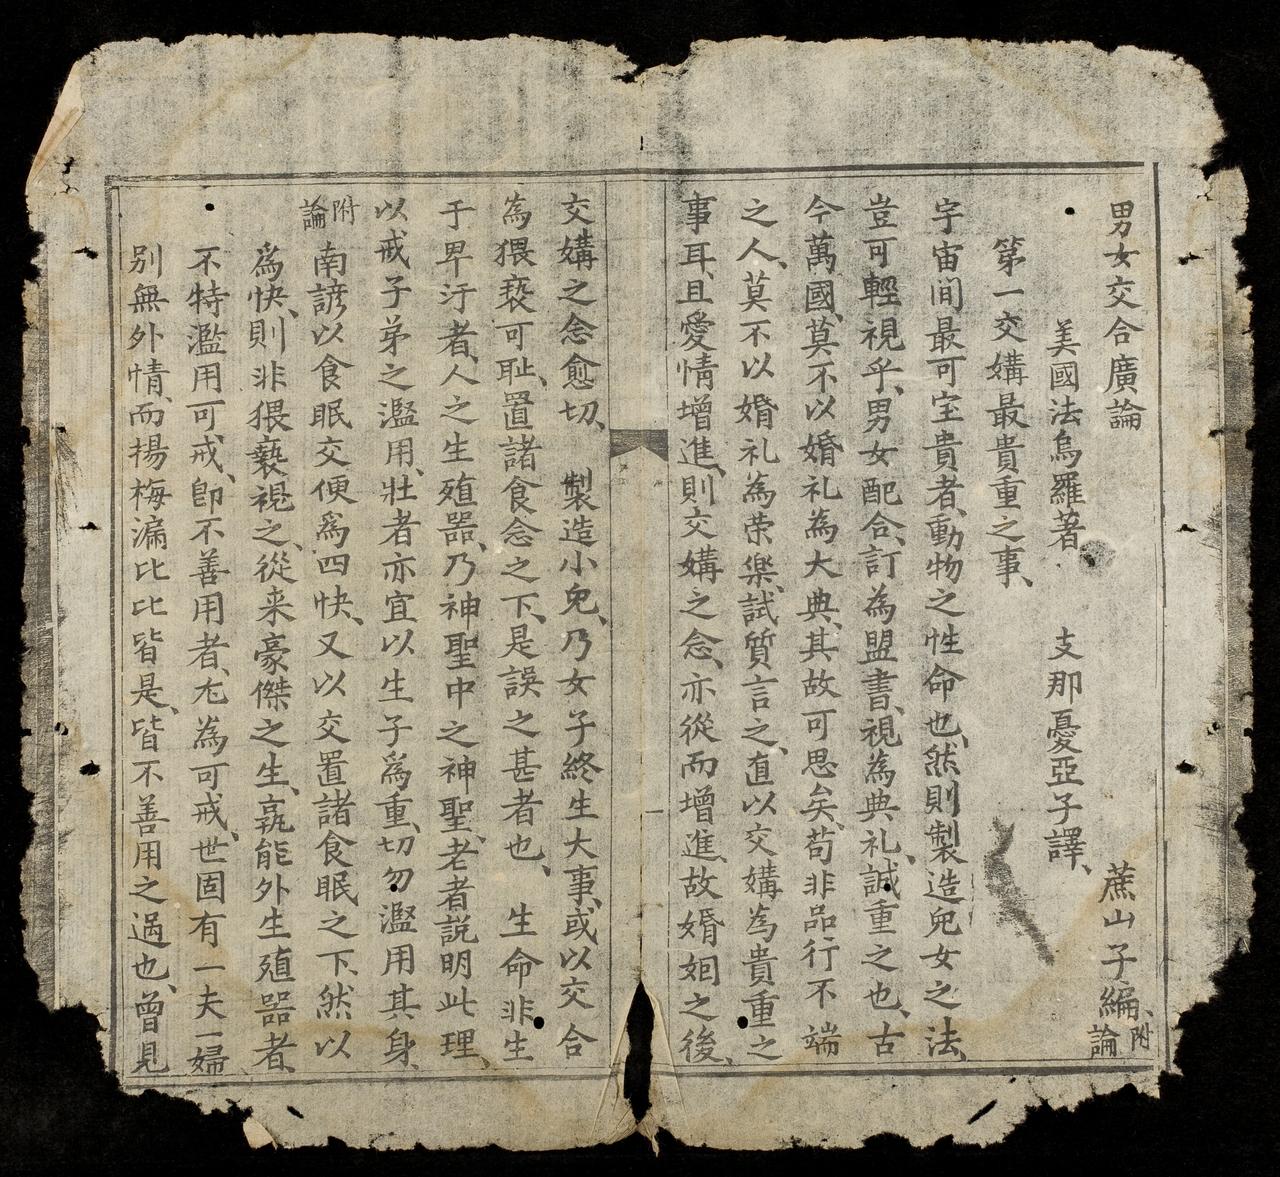 男女交合廣論　蔗山子編、附論
美國法烏羅著　支那憂亞子譯、
第一交媾最貴重之事、
宇宙间最可宝貴者、動物之性命也、然則製造兒女之法、
豈可輕視乎、男女配合、訂為盟書、視為典礼、誠重之也、古
今萬國、莫不以婚礼為大典、其故可思矣、苟非品行不端
之人、莫不以婚礼為荣樂、試质言之、直以交媾為貴重之
事耳、且愛情增進、則交媾之念、亦從而增進、故婚姻之後、
交媾之念愈切、　製造小兒、乃女子終生大事、或以交合
為猥褻可耻、置諸食念之下、是誤之甚者也、　生命非生
于卑汙者、人之生殖噐、乃神聖中之神聖、老者説明此理、
以戒子弟之濫用、壮者亦宜以生子爲重、切勿濫用其身、
附論　南諺以食眠交便爲四快、又以交置諸食眠之下、然以
爲快、則非猥褻視之、從来豪傑之生、孰能外生殖噐者、
不特濫用可戒、卽不善用者、尤為可戒、世固有一夫一婦
别無外情、而揚梅漏比比皆是、皆不善用之過也、曾見